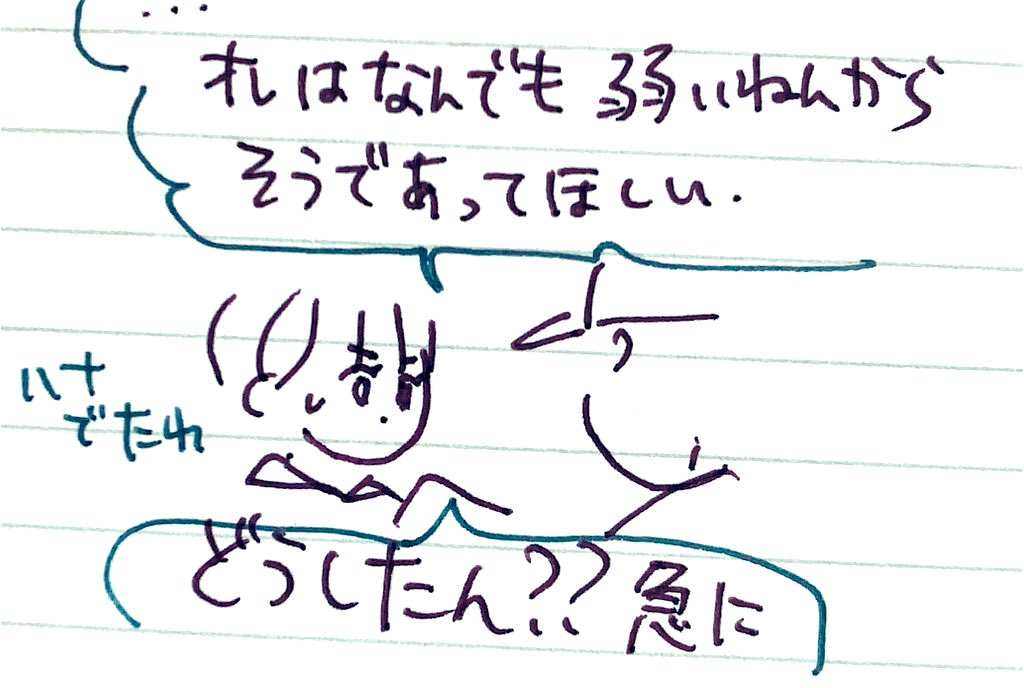 …
オレはなんでも弱いねんから
そうであってほしい.
ハナ
でたれ
どうしたん??急に